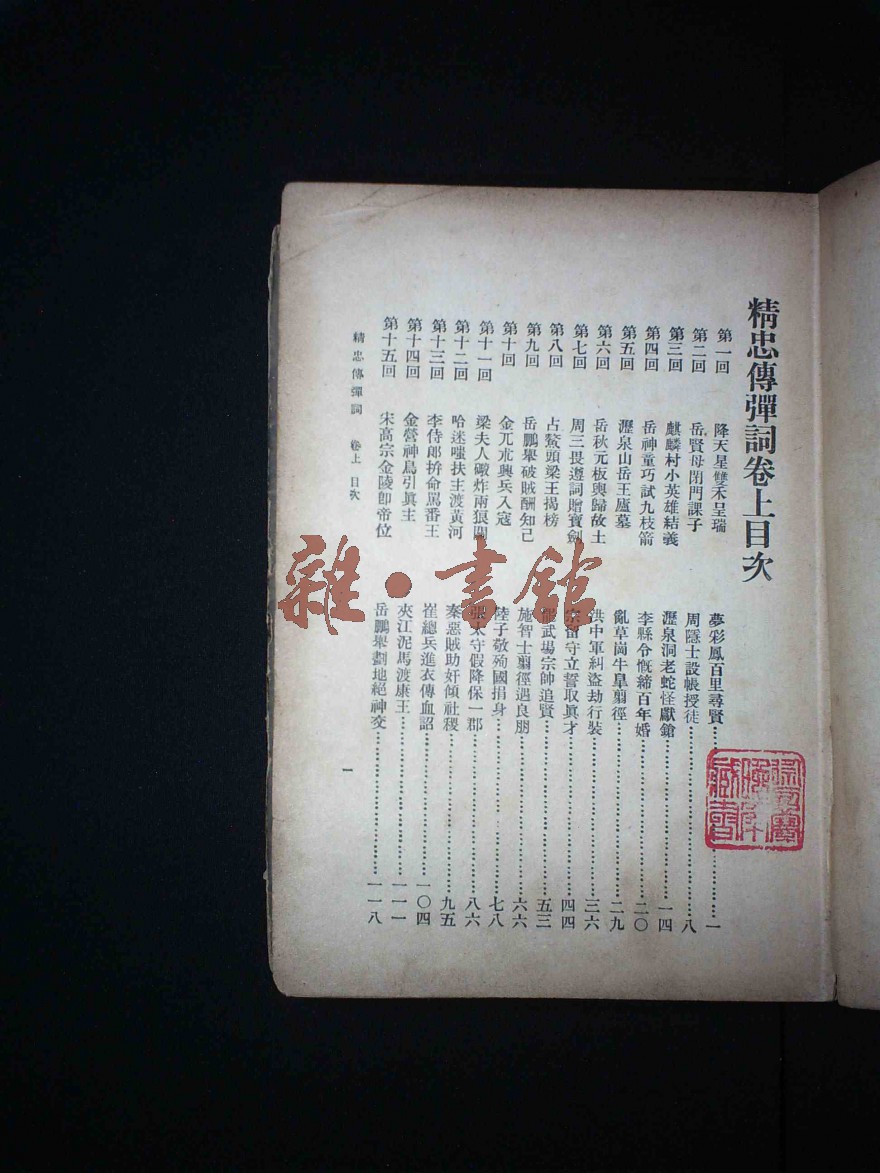 精忠傳彈詞卷上目次
第一回 降天星雙禾呈瑞 夢彩鳳百里尋賢 一
第二回 岳賢母閉門課子 周隱士設帳授徒 八
第三回 麒麟村小英雄結義 瀝泉洞老蛇怪獻鎗 一四
第四回 岳神童巧試九枝箭 李縣令慨締百年婚 二〇
第五回 瀝泉山岳王廬墓 亂草崗牛皐翦徑 二九
第六回 岳秋元板輿歸故土 洪中軍糾盜劫行裝 三六
第七回 周三畏遵詞贈寶劍 宗留守立誓取眞才 四四
第八回 占鰲頭梁王揭榜 武場宗帥追賢 五三
第九回 岳鵬舉破賊酬知己 施智士翦徑遇良朋 六六
第十回 金兀朮興兵入寇 陸子敬殉國捐身 七八
第十一回 梁夫人礮炸兩狼關 張太守假降保一郡 八六
第十二回 哈迷嗤扶主渡黃河 秦惡賊助奸傾社稷 九五
第十三回 李侍郎拚命罵番王 崔總兵進衣傳血詔 一〇四
第十四回 金營神鳥引眞主 夾江泥馬渡康王 一一一
第十五回 宋高宗金陵卽帝位 岳鵬舉劃地絕神交 一一八
精忠傳彈詞 卷上 目次
一
雜·書館